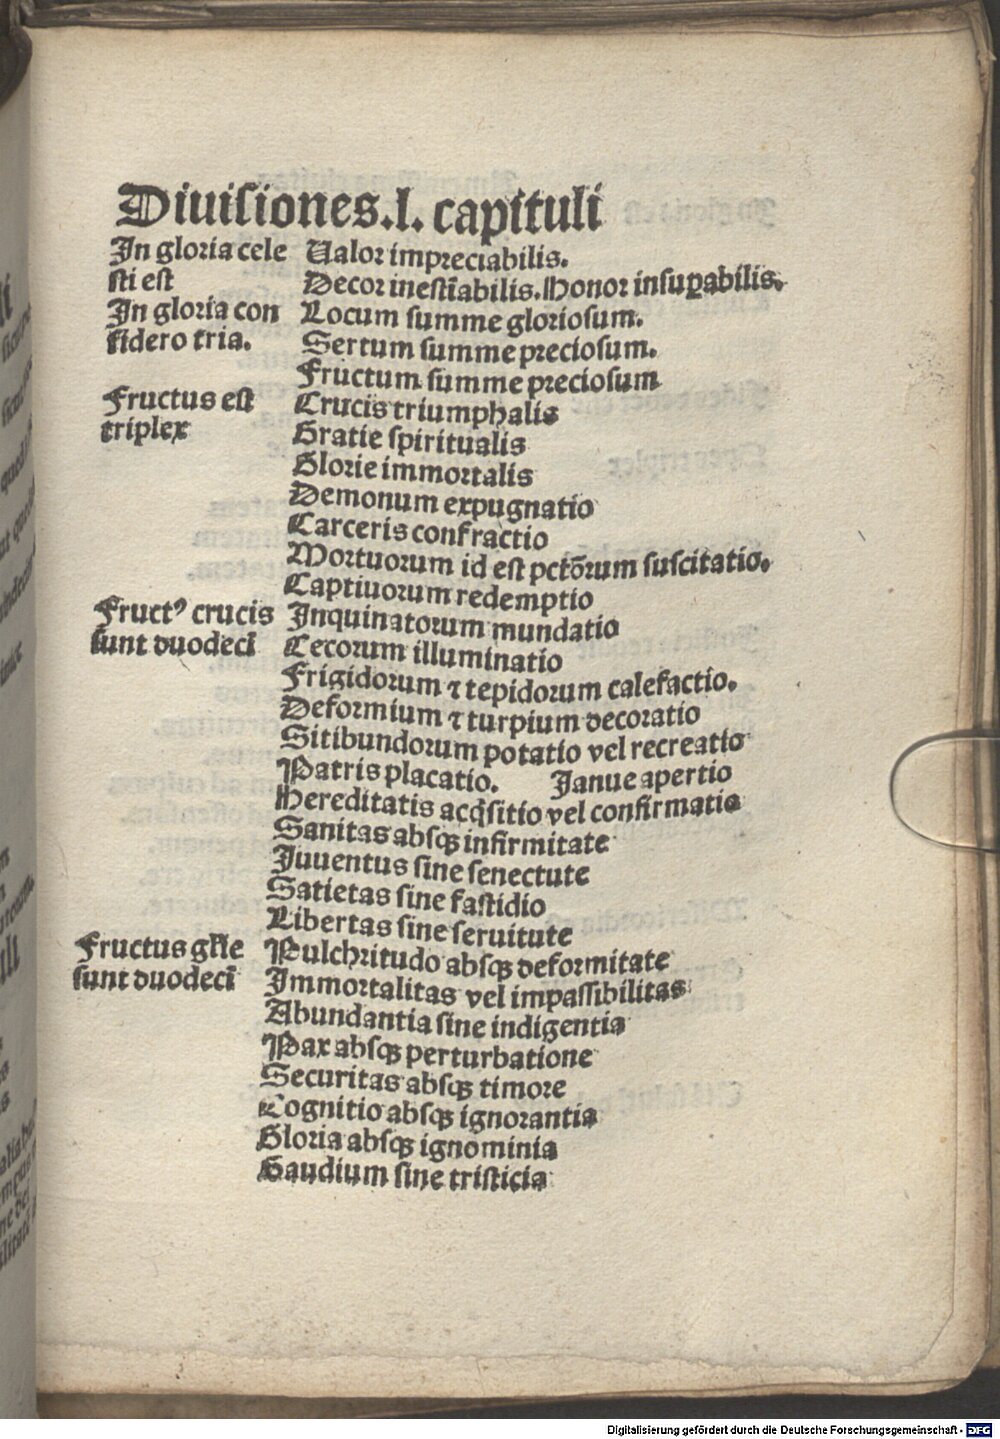 Diuisiones.l. capituli
In gloria cele Ualor impreciabilis.
sti est Decor inestīabilis. Honor insuꝑabilis.
In gloria con Locum summe gloriosum.
sidero tria. Sertum summe preciosum.
Fructum summe preciosum
Fructus est Crucis triumphalis
triplex Gratie spiritualis
Glorie immortalis
Demonum expugnatio
Carceris confractio
Mortuorum id est pctōrum suscitatio.
Captiuorum redemptio
Fructꝰ crucis Inquinatorum mundatio
sunt duodecī Cecorum illuminatio
Frigidorum ⁊ tepidorum calefactio.
Deformium ⁊ turpium decoratio
Sitibundorum potatio vel recreatio
Patris placatio. Janue apertio
Hereditatis acq̇sitio vel confirmatio
Sanitas absqꝫ infirmitate
Juuentus sine senectute
Satietas sine fastidio
Libertas sine seruitute
Fructus gl̄ie Pulchritudo absqꝫ deformitate
sunt duodecī Immortalitas vel impassibilitas
Abundantia sine indigentia
Pax absqꝫ perturbatione
Securitas absqꝫ timore
Cognitio absqꝫ ignorantia
Gloria absqꝫ ignominia
Gaudium sine tristicia
Digitalisierung gefördert durch die Deutsche Forschungsgemeinschaft - DFG